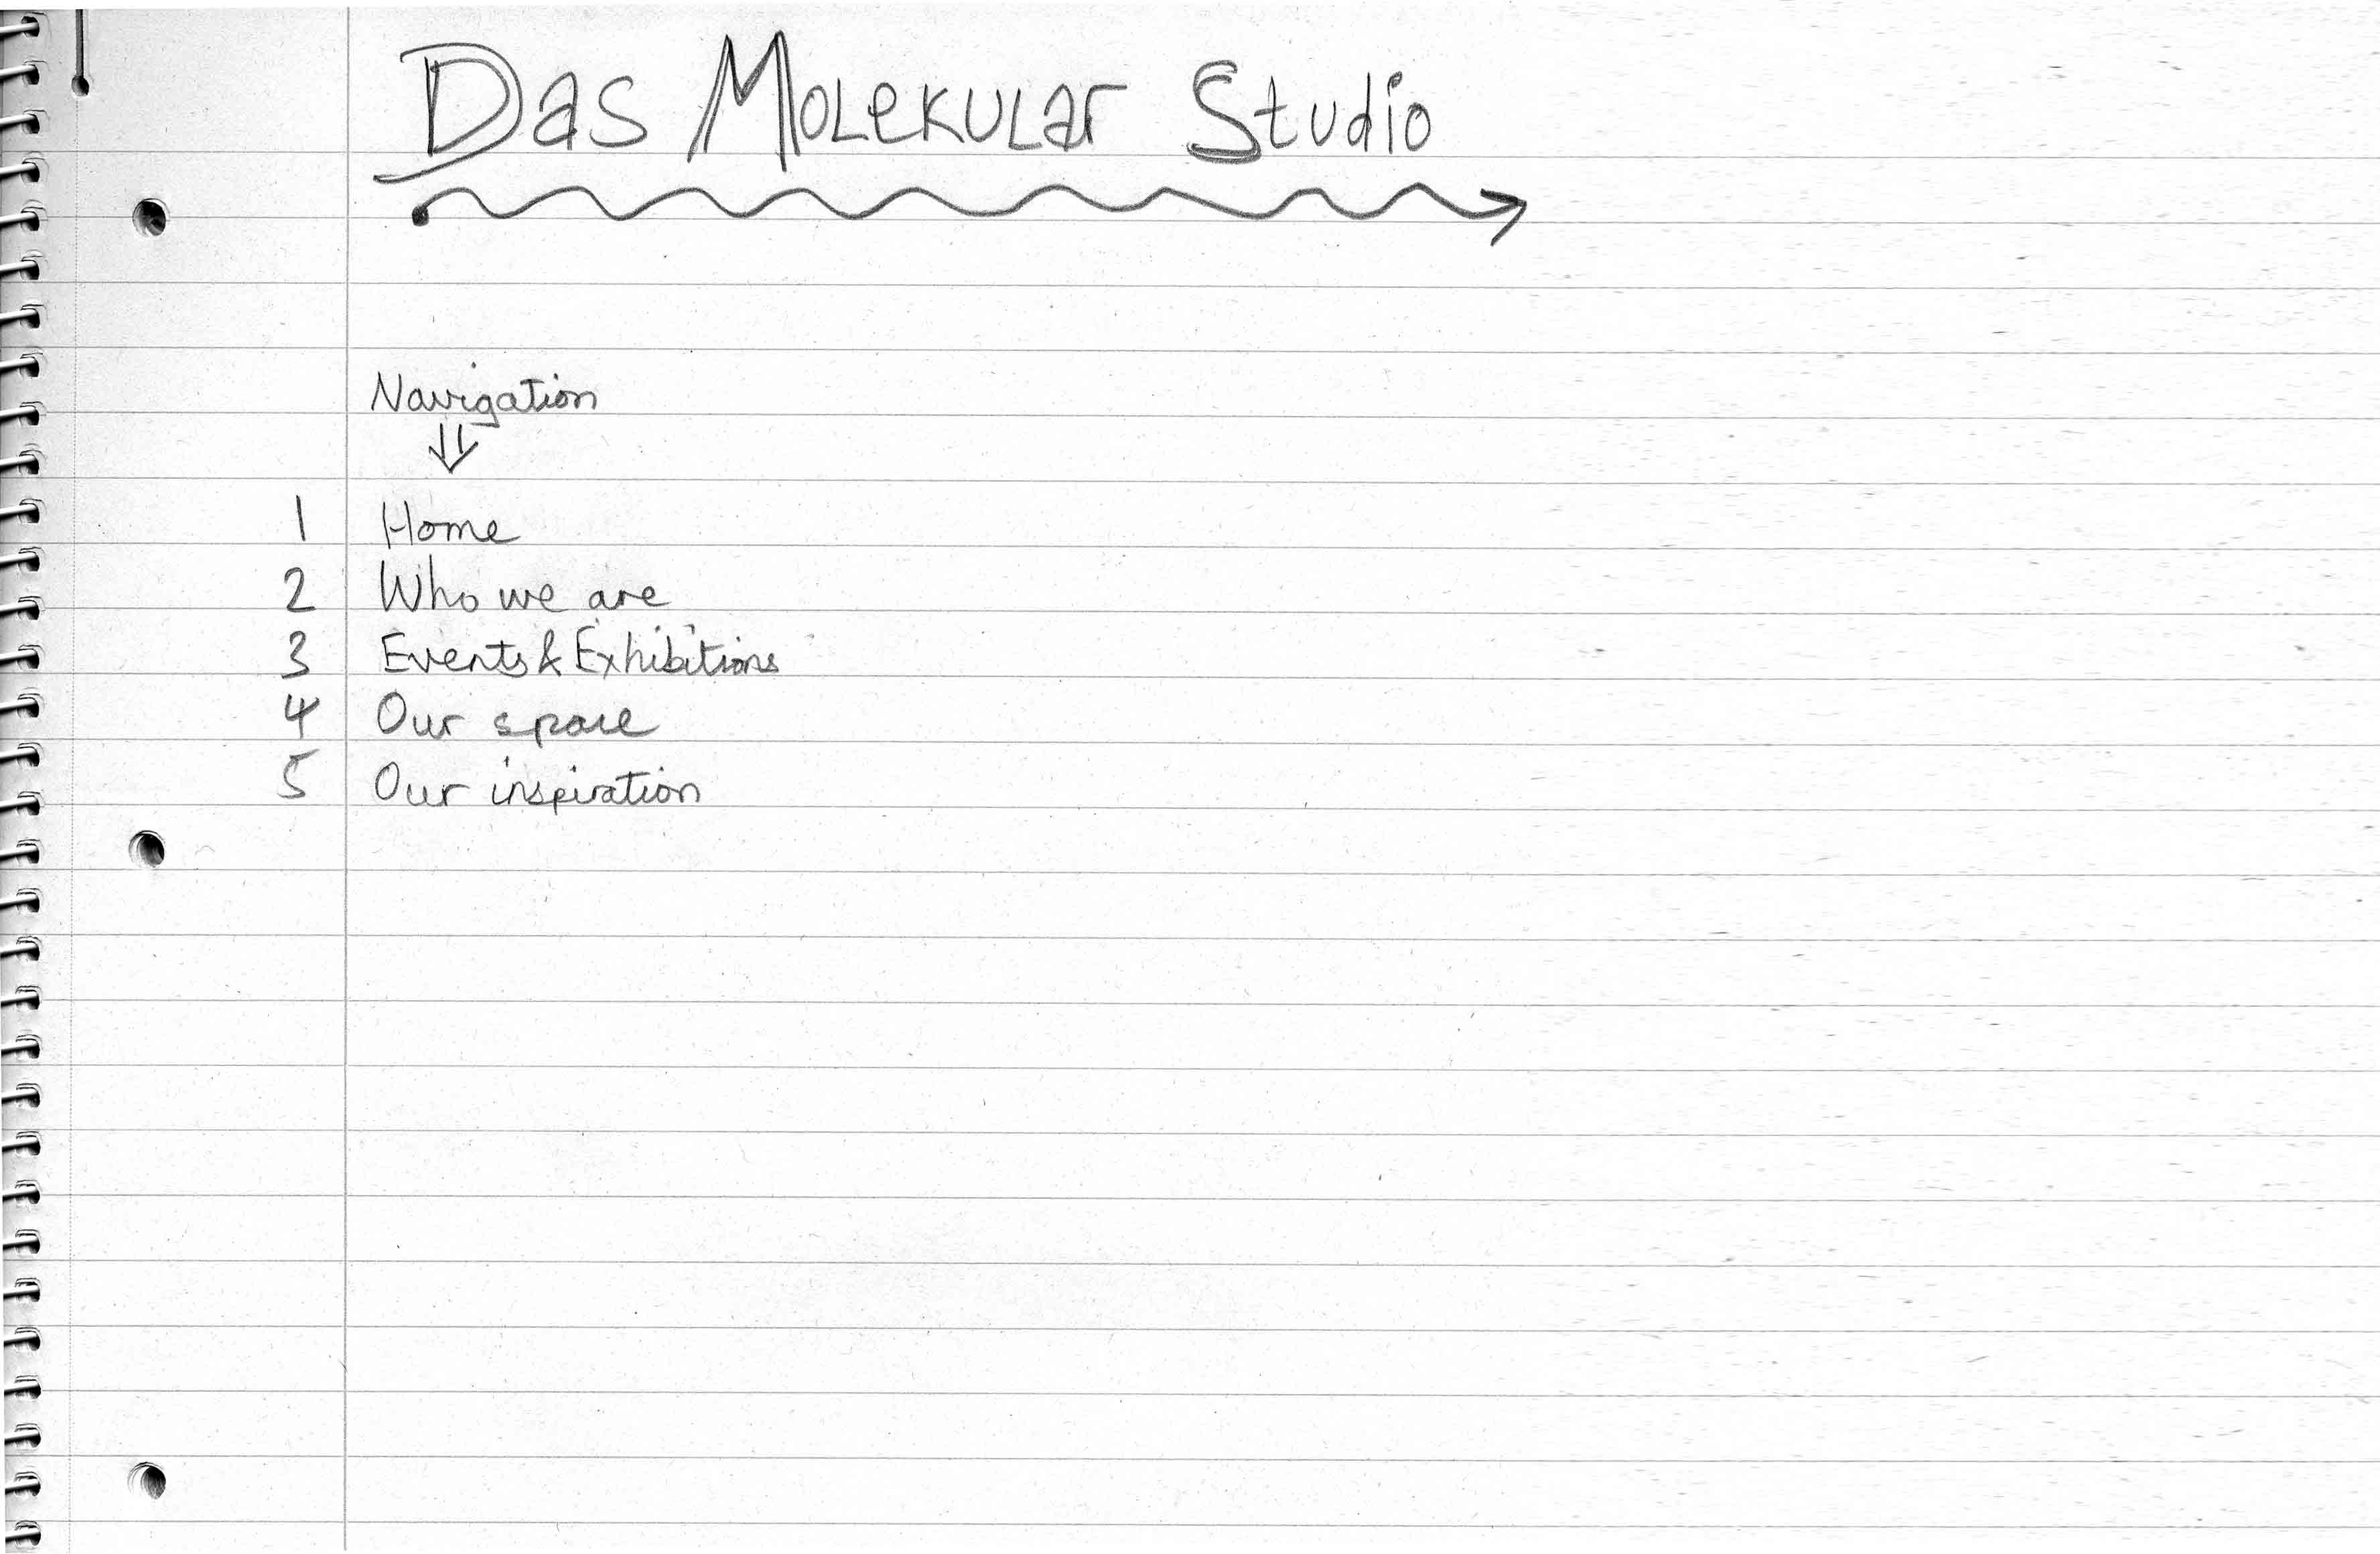 Das Molekular Studio
Navigation
1 Home
2 Who we are
3 Events & Exhibitions
4 Our space
5 Our inspiration